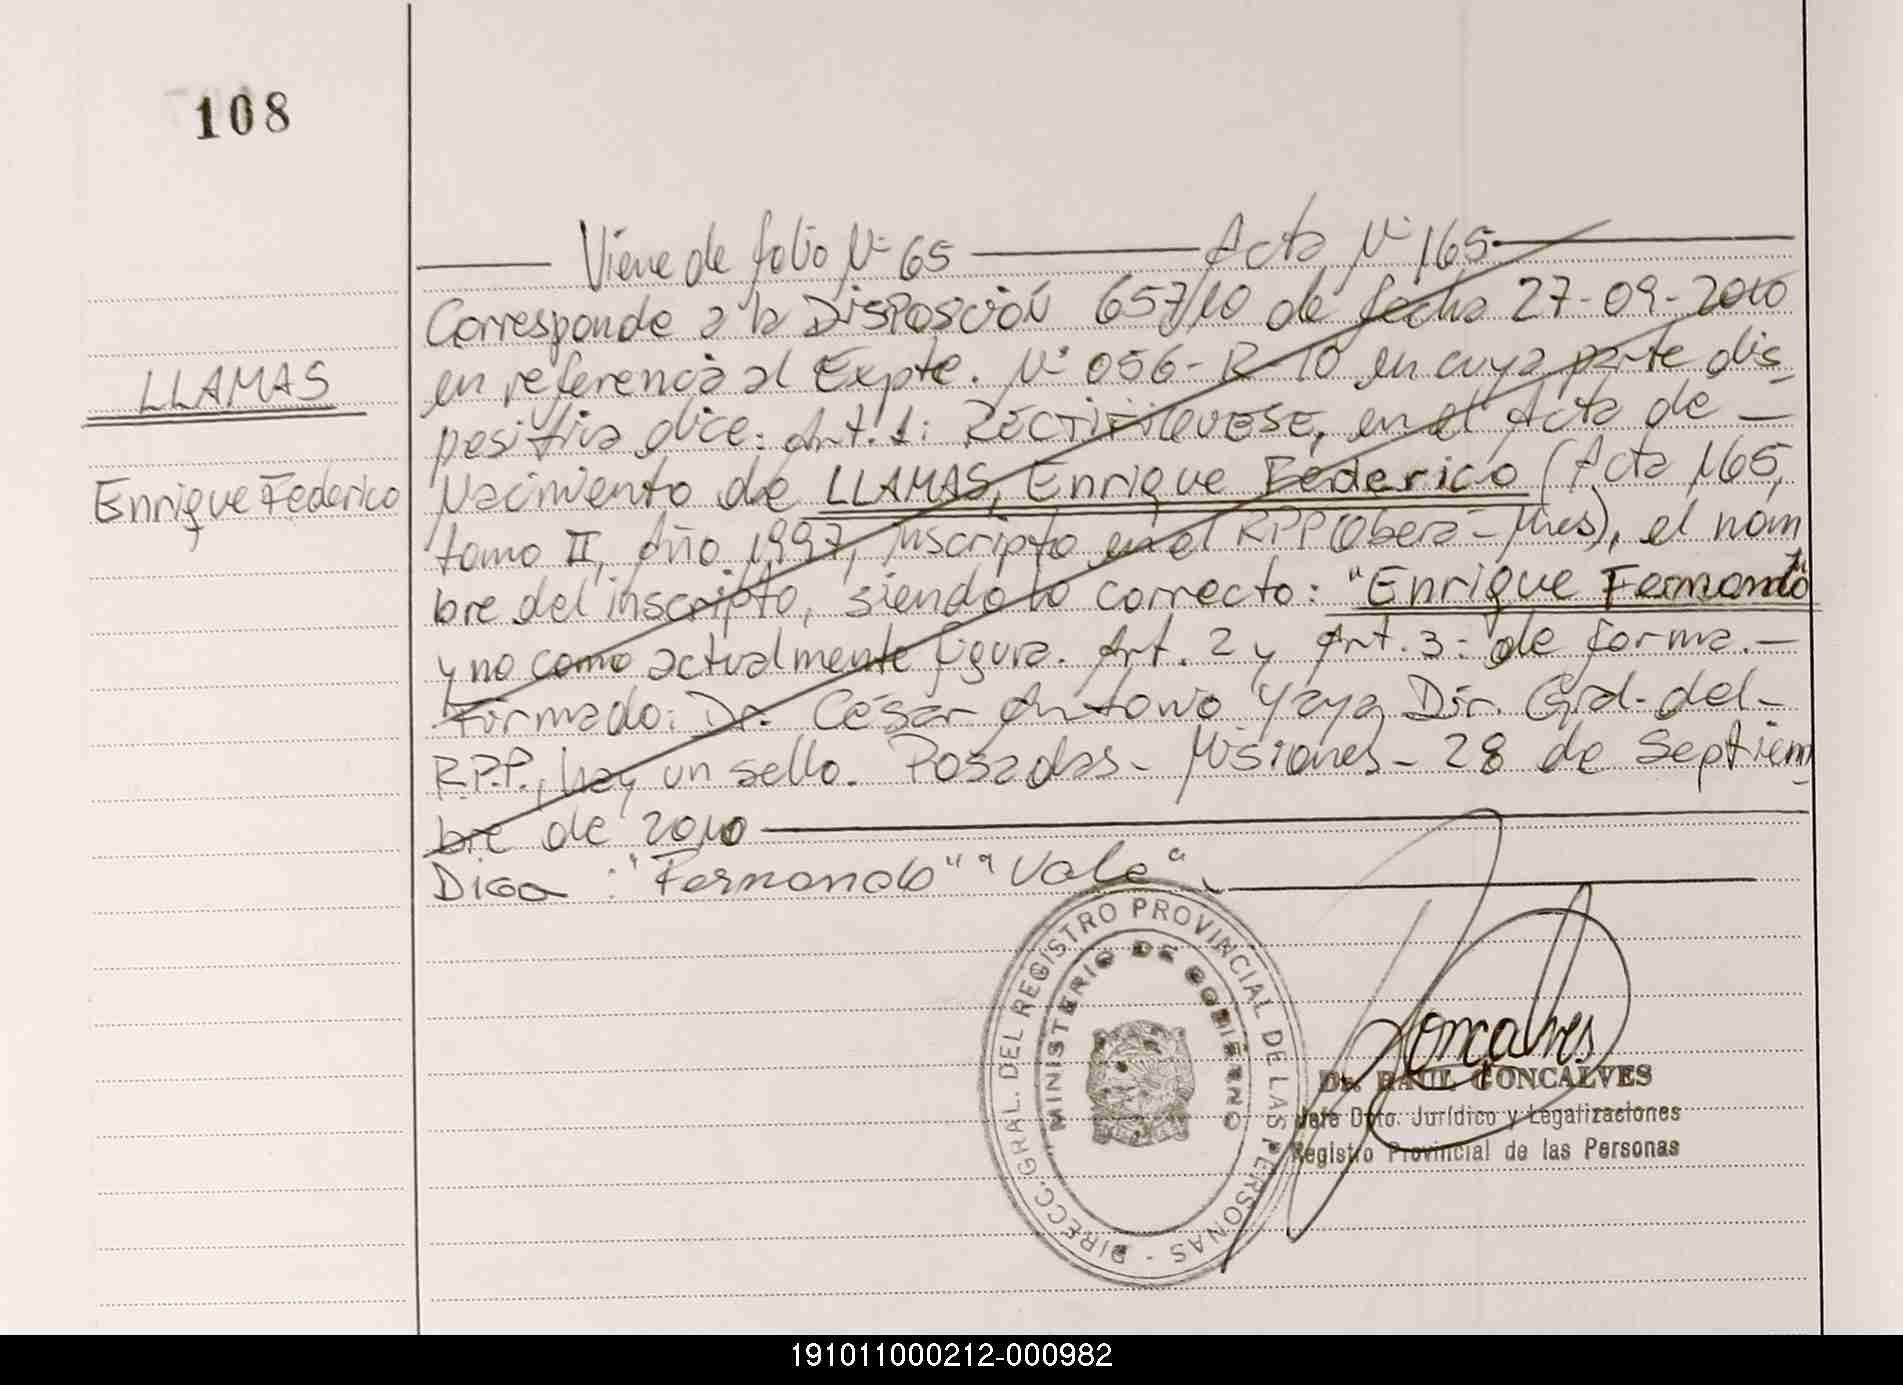 108
Viene de folio Nº 65 Acta Nº 165
Corresponde a la DISPOSCIÓN 657/10 de fecha 27-09-2010
en referencia al Expte. Nº 056-R-10 en cuya parte dis
positiva dice: Art. 1: RECTIFIQUESE, en el Acta de
Nacimiento de LLAMAS, Enrique Federico (Acta 165,
tomo II, Año 1997, inscripto en el RPP (Oberá - Mnes), el nom
bre del inscripto, siendo lo correcto: "Enrique Fernando"
y no como actualmente figura. Art. 2 y Art. 3: de forma.-
Firmado: Dr. César Antonio Yaya Dir. Gral. del-
R.P.P., hay un sello. Posadas - Misiones - 28 de Septiem
bre de 2010
Diga: "Fernando" "Vale".
LLAMAS
Enrique Federico
DIRECC. GRAL. DEL REGISTRO PROVINCIAL DE LAS PERSONAS -
MINISTERIO DE GOBIERNO
Goncalves
Dr. RAUL GONCALVES
Jefe Dpto. Jurídico y Legalizaciones
Registro Provincial de las Personas
191011000212-000982